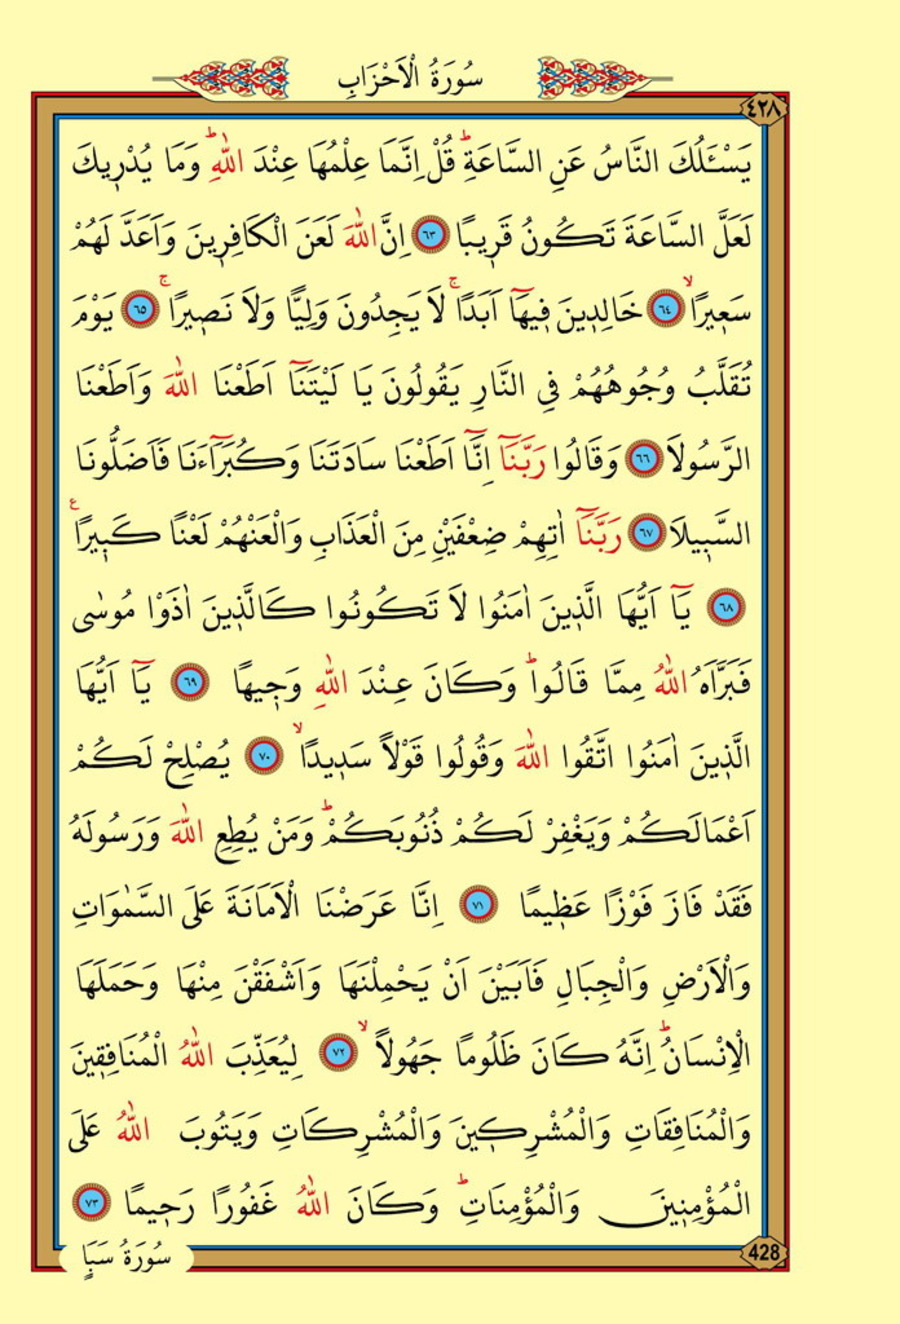 سُورَةُ الْاَحْزَابِ
٤٢٨
يَسْـَٔلُكَ النَّاسُ عَنِ السَّاعَةِۜ قُلْ اِنَّمَا عِلْمُهَا عِنْدَ اللّٰهِۜ وَمَا يُدْر۪يكَ
لَعَلَّ السَّاعَةَ تَكُونُ قَر۪يبًا ﴿٦٣﴾ اِنَّ اللّٰهَ لَعَنَ الْكَافِر۪ينَ وَاَعَدَّ لَهُمْ
سَع۪يرًاۙ ﴿٦٤﴾ خَالِد۪ينَ ف۪يهَٓا اَبَدًاۚ لَا يَجِدُونَ وَلِيًّا وَلَا نَص۪يرًاۚ ﴿٦٥﴾ يَوْمَ
تُقَلَّبُ وُجُوهُهُمْ فِي النَّارِ يَقُولُونَ يَا لَيْتَنَٓا اَطَعْنَا اللّٰهَ وَاَطَعْنَا
الرَّسُولَا ﴿٦٦﴾ وَقَالُوا رَبَّنَٓا اِنَّٓا اَطَعْنَا سَادَتَنَا وَكُبَرَٓاءَنَا فَاَضَلُّونَا
السَّب۪يلَا ﴿٦٧﴾ رَبَّنَٓا اٰتِهِمْ ضِعْفَيْنِ مِنَ الْعَذَابِ وَالْعَنْهُمْ لَعْنًا كَب۪يرًا ع
﴿٦٨﴾ يَٓا اَيُّهَا الَّذ۪ينَ اٰمَنُوا لَا تَكُونُوا كَالَّذ۪ينَ اٰذَوْا مُوسٰى
فَبَرَّاَهُ اللّٰهُ مِمَّا قَالُواۜ وَكَانَ عِنْدَ اللّٰهِ وَج۪يهًا ﴿٦٩﴾ يَٓا اَيُّهَا
الَّذ۪ينَ اٰمَنُوا اتَّقُوا اللّٰهَ وَقُولُوا قَوْلًا سَد۪يدًاۙ ﴿٧٠﴾ يُصْلِحْ لَكُمْ
اَعْمَالَكُمْ وَيَغْفِرْ لَكُمْ ذُنُوبَكُمْۜ وَمَنْ يُطِعِ اللّٰهَ وَرَسُولَهُ
فَقَدْ فَازَ فَوْزًا عَظ۪يمًا ﴿٧١﴾ اِنَّا عَرَضْنَا الْاَمَانَةَ عَلَى السَّمٰوَاتِ
وَالْاَرْضِ وَالْجِبَالِ فَاَبَيْنَ اَنْ يَحْمِلْنَهَا وَاَشْفَقْنَ مِنْهَا وَحَمَلَهَا
الْاِنْسَانُۜ اِنَّهُ كَانَ ظَلُومًا جَهُولًاۙ ﴿٧٢﴾ لِيُعَذِّبَ اللّٰهُ الْمُنَافِق۪ينَ
وَالْمُنَافِقَاتِ وَالْمُشْرِك۪ينَ وَالْمُشْرِكَاتِ وَيَتُوبَ اللّٰهُ عَلَى
الْمُؤْمِن۪ينَ وَالْمُؤْمِنَاتِۜ وَكَانَ اللّٰهُ غَفُورًا رَح۪يمًا ﴿٧٣﴾
428
سُورَةُ سَبَاٍ